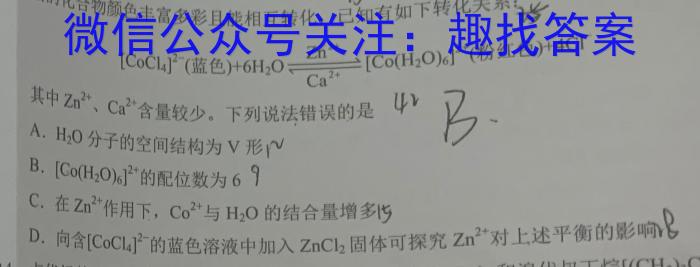 的化合物颜色丰富多彩且能相互转化，已知有如下转化关系：
微信公众号关注：趣找答案
[CoCl₄]²⁻(蓝色)+6H₂O ⇌ Zn²⁺ Ca²⁺ [Co(H₂O)₆]
其中 Zn²⁺、Ca²⁺含量较少。下列说法错误的是
B.
A．H₂O 分子的空间结构为 V 形
B．[Co(H₂O)₆]²⁺的配位数为 6 9
C．在 Zn²⁺作用下，Co²⁺与 H₂O 的结合量增多 15
D．向含[CoCl₄]²⁻的蓝色溶液中加入 ZnCl₂ 固体可探究 Zn²⁺对上述平衡的影响 18